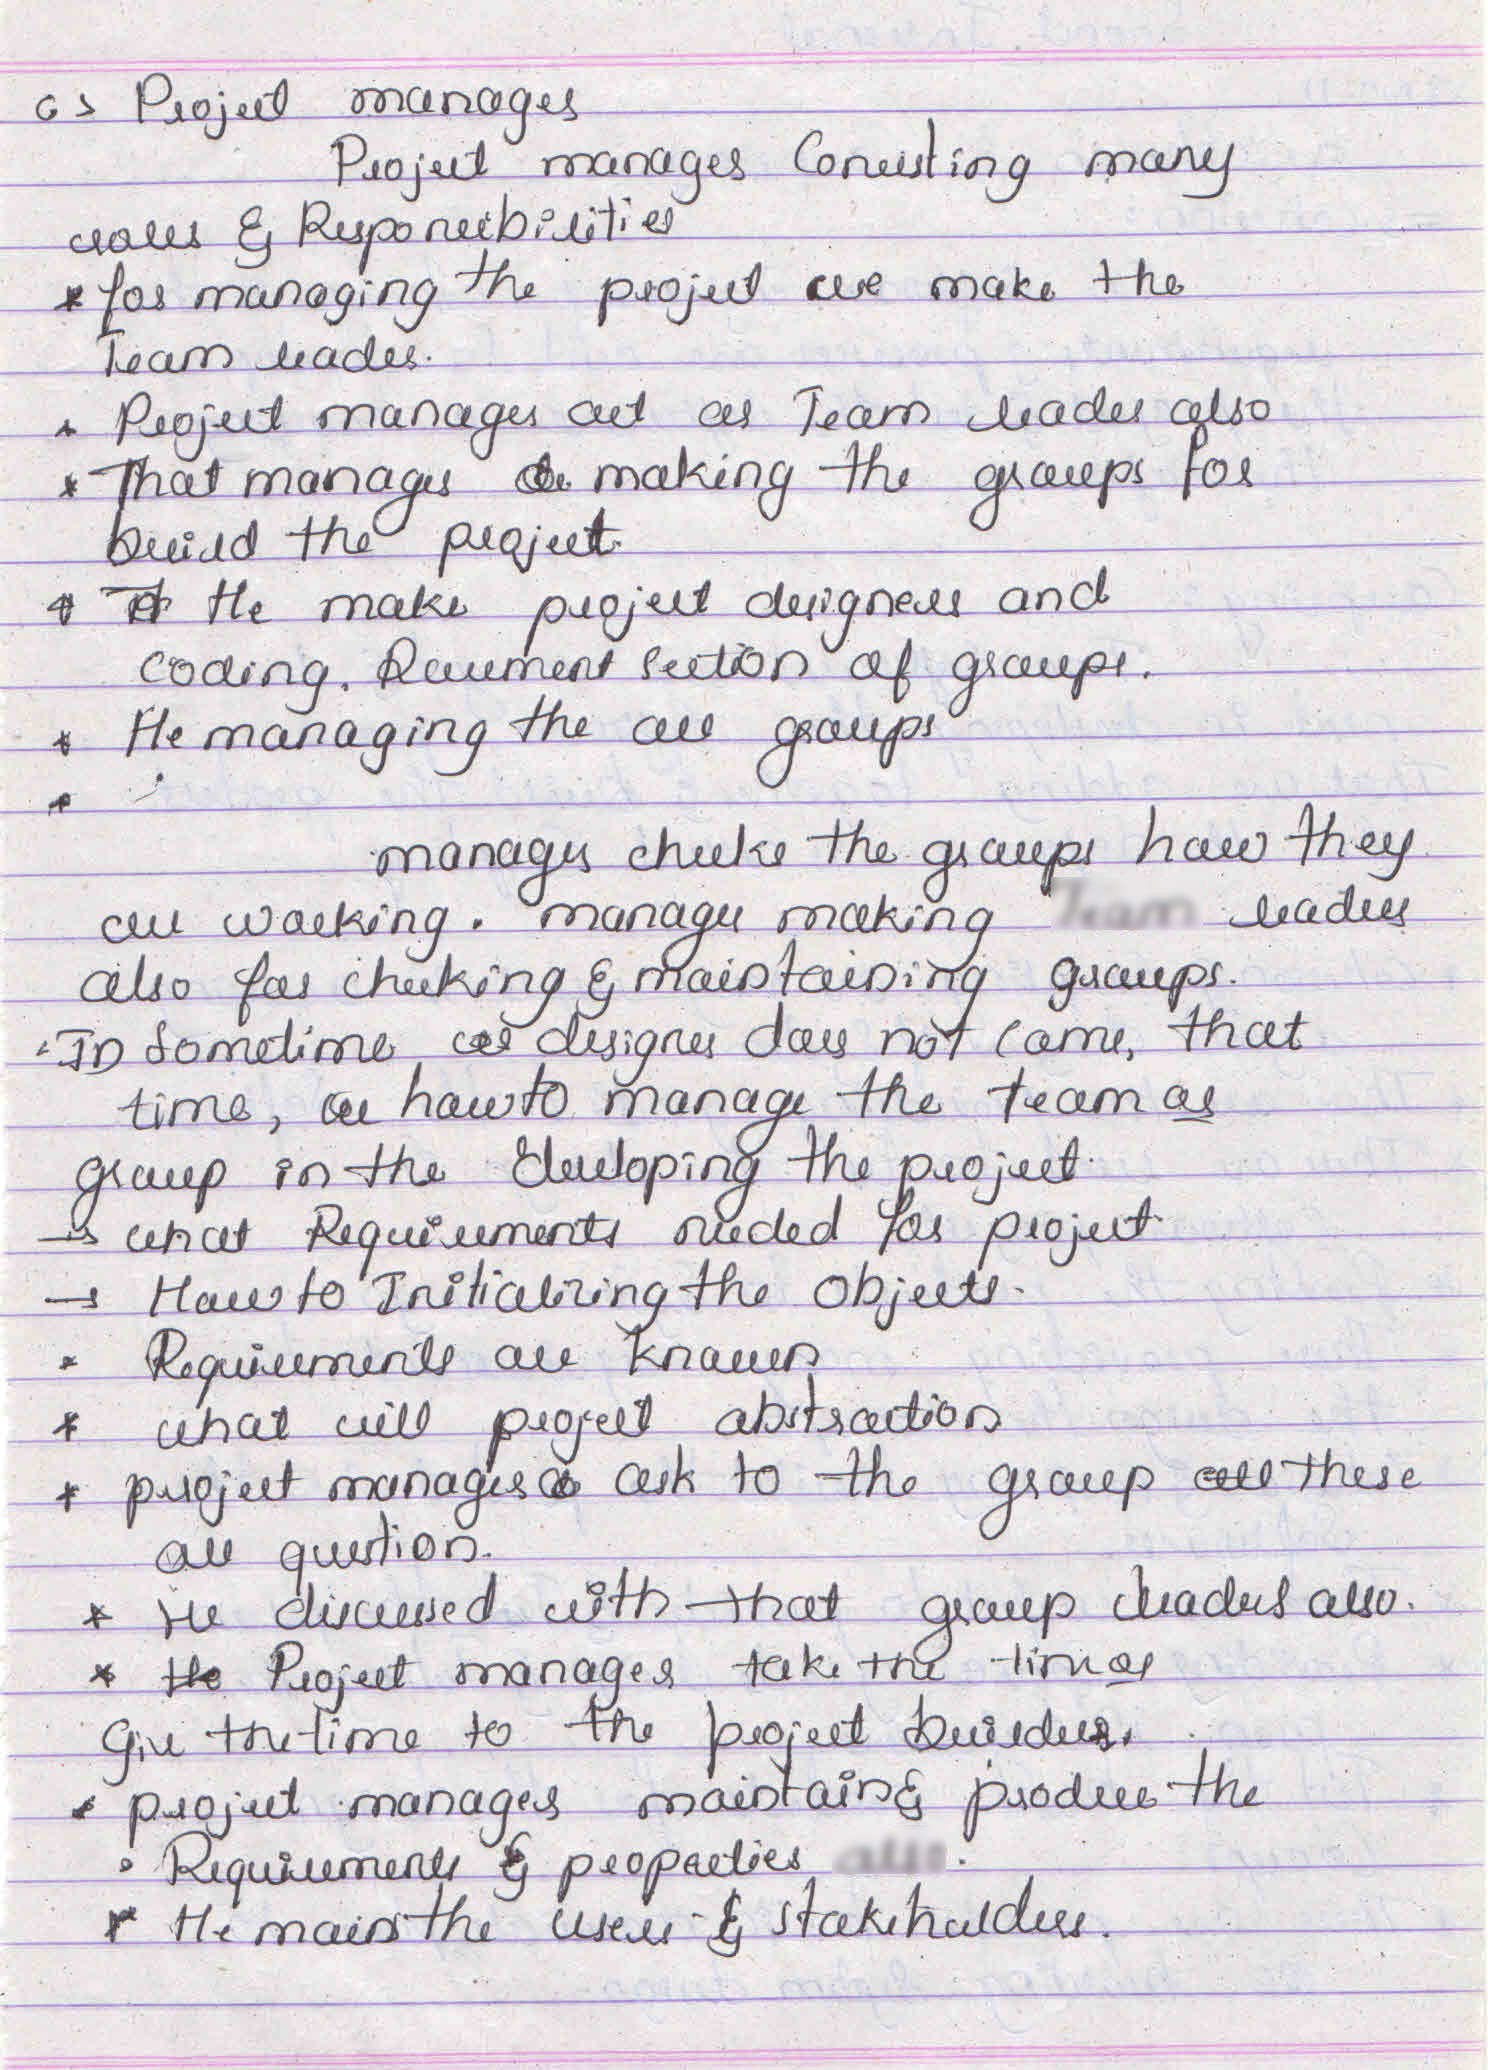 6> Project manager
Project manager Consisting many
roles & Responsibilities
* for managing the project we make the
Team leader.
* Project manager act as Team leader also
* That manager making the groups for
build the project.
* He make project designers and
coding. Document section of groups.
* He managing the all groups
*
manager checks the groups how they
are working. manager making leaders
also for checking & maintaining groups.
In Sometime designer does not come, that
time, how to manage the team or
group in the developing the project.
→ what Requirements needed for project.
→ How to Initializing the objects.
* Requirements are known
* what will project abstraction
* project manager ask to the group these
all question.
* He discussed with that group leaders also.
* Project manager take the time or
Give the time to the project builders.
* project manager maintain & produce the
Requirements & properties .
* He main the users & stakeholders.